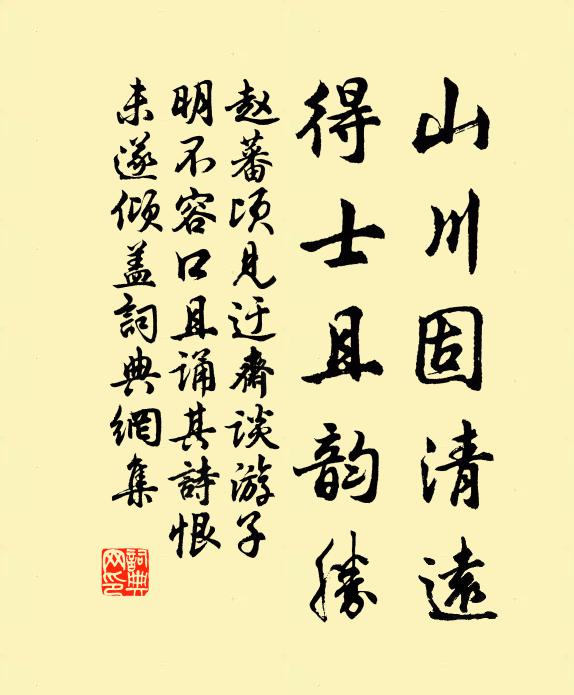 山川固清遠
得士且韵勝
赵蕃顷見迂齋谈游子
明不容口且诵其詩恨
未遂倾盖詞典網集
詞典網印